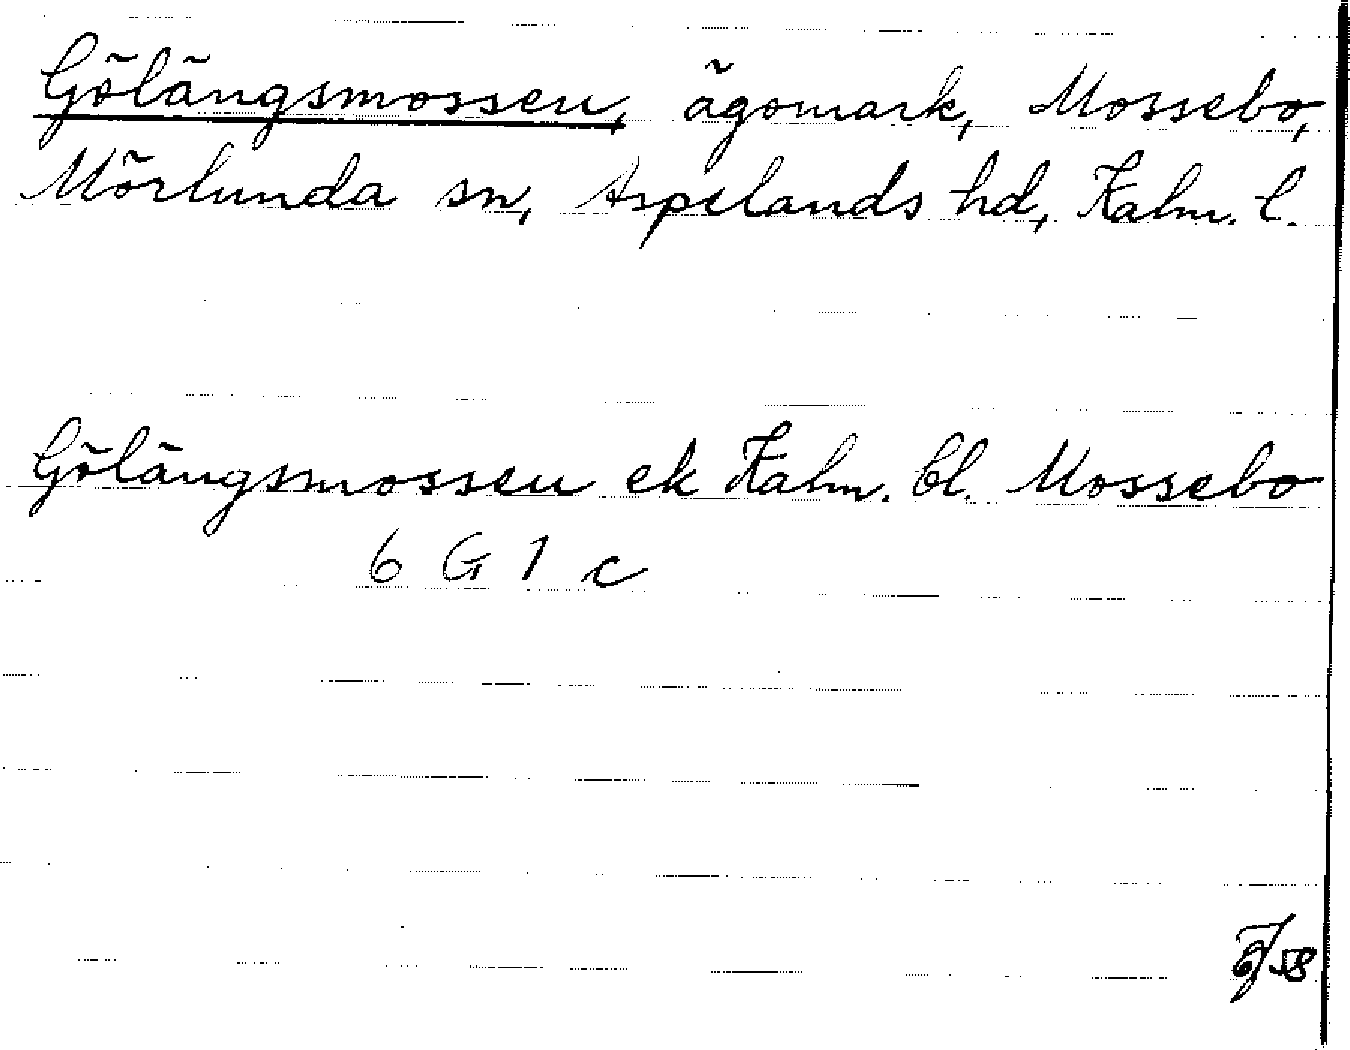 Gölängsmossen, ägomark, Mossebo,
Mörlunda sn, Aspelands hd, Kalm. l.
Gölängsmossen ek Kalm. bl. Mossebo
6 G 1 c